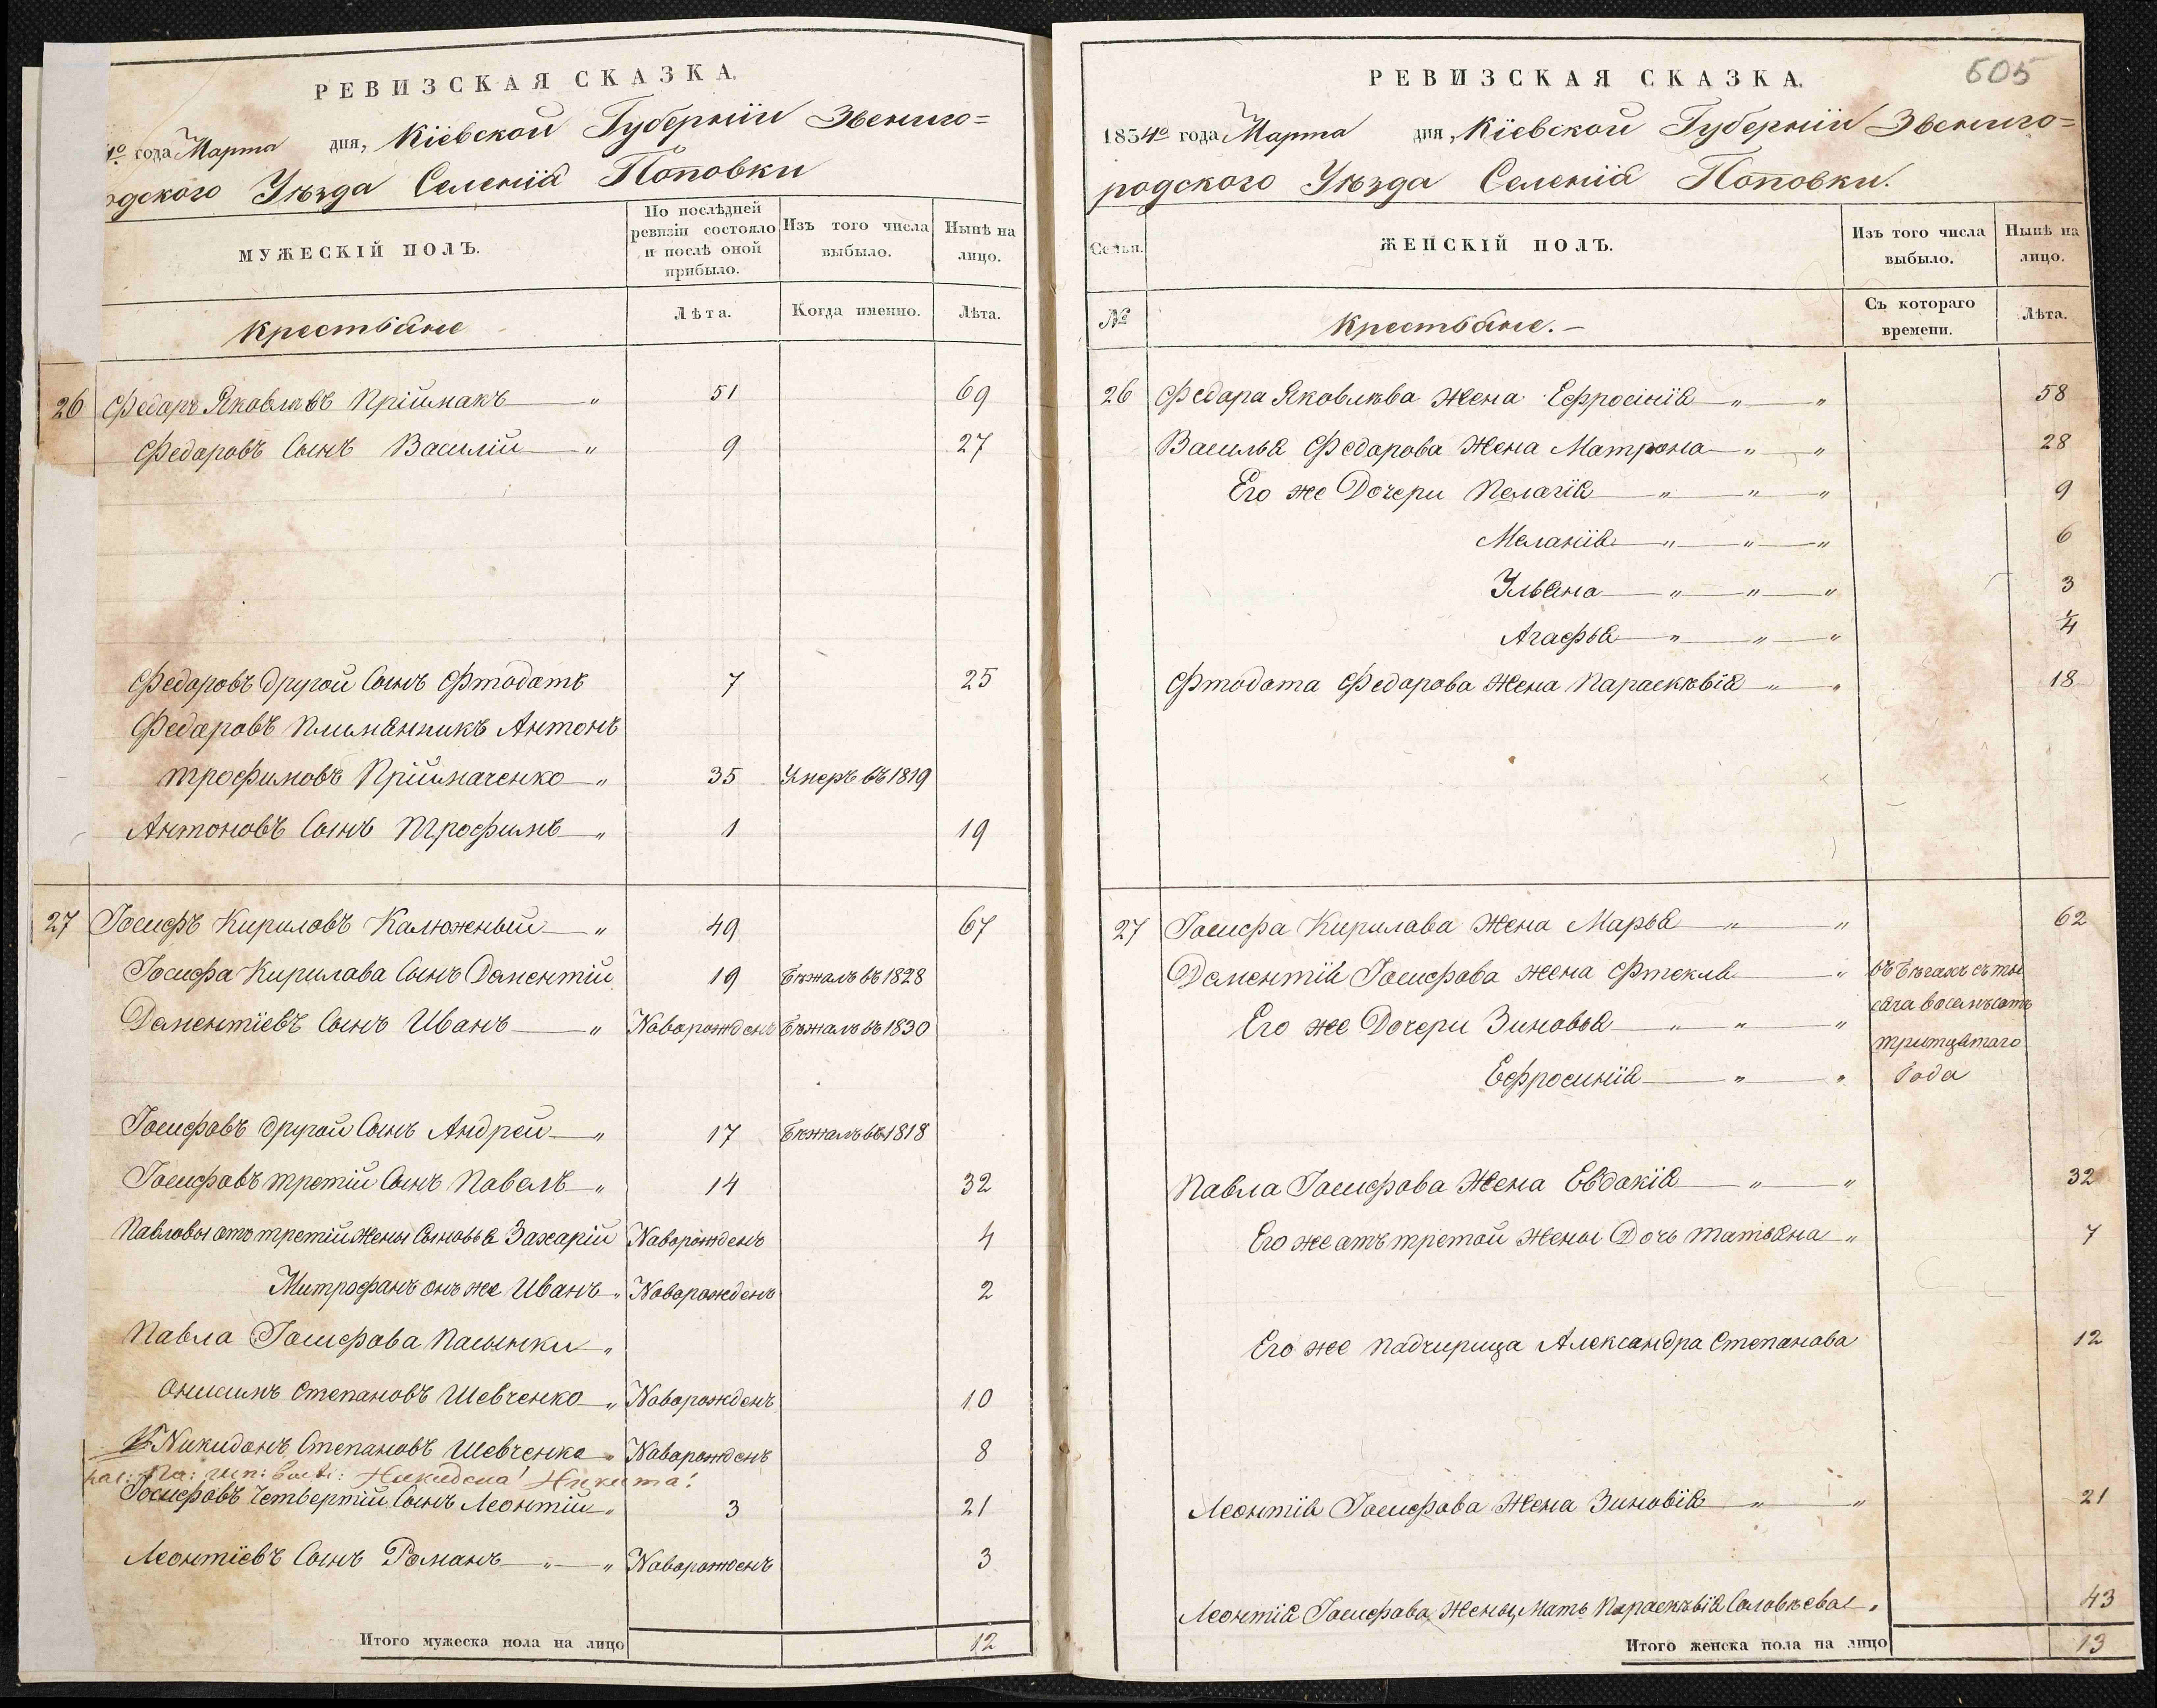 РЕВИЗСКАЯ СКАЗКА.
4го года Марта дня, Кіевской Губерніи Звениго=
родского Уѣзда Селенія Поповки
МУЖЕСКІЙ ПОЛЪ.
По послѣдней ревизіи состояло и послѣ оной прибыло.
Изъ того числа выбыло.
Нынѣ на лицо.
Крестьяне
Лѣта.
Когда именно.
Лѣта.
26 Федоръ Яковлевъ Пріймакъ 51 69
Федоровъ Сынъ Василій 9 27
Федоровъ другой Сынъ Фтодатъ 7 25
Федоровъ Племянникъ Антонъ
трофимовъ Пріймаченко 35 Умеръ въ 1819
Антоновъ Сынъ Трофимъ 1 19
27 Іосифъ Кириловъ Калюжный 49 67
Іосифа Кирилова Сынъ Дементій 19 Бѣжалъ въ 1828
Дементіевъ Сынъ Иванъ Новорожденъ Бѣжалъ въ 1830
Іосифовъ другой Сынъ Андрей 17 Бѣжалъ въ 1818
Іосифовъ третій Сынъ Павелъ 14 32
Павловы отъ третій жены Сыновья Захарій Новорожденъ 4
Митрофанъ онъ же Иванъ Новорожденъ 2
Павла Іосифова Пасынки
Онисимъ Степановъ Шевченко Новорожденъ 10
Никидонъ Степановъ Шевченко Новорожденъ 8
Никидона Никита
Іосифовъ Четвертій Сынъ Леонтій 3 21
Леонтіевъ Сынъ Романъ Новорожденъ 3
Итого мужеска пола на лицо 12
605
РЕВИЗСКАЯ СКАЗКА.
1834го года Марта дня, Кіевской Губерніи Звениго=
родского Уѣзда Селенія Поповки.
Семьи.
ЖЕНСКІЙ ПОЛЪ.
Изъ того числа выбыло.
Нынѣ на лицо.
№
Крестьяне.
Съ котораго времени.
Лѣта.
26 Федора Яковлева Жена Ефросинія 58
Василья Федорова Жена Матрона 28
Его же Дочери Пелагія 9
Меланія 6
Ульяна 3
Агафья 1/4
Фтодота Федорова Жена Параскѣвія 18
27 Іосифа Кирилова Жена Марья 62
Дементія Іосифова жена Фтекла въ Бѣгахъ съ ты
Его же Дочери Зиновья сяча восемьсотъ
тритцятаго
Ефросинія Года
Павла Іосифова Жена Евдакія 32
Его же отъ третой жены Дочь татьяна 7
Его же падчирица Александра Степанова 12
Леонтія Іосифова Жена Зиновія 21
Леонтія Іосифова Жены Мать Параскѣвія Соловѣева 43
Итого женска пола на лицо 13